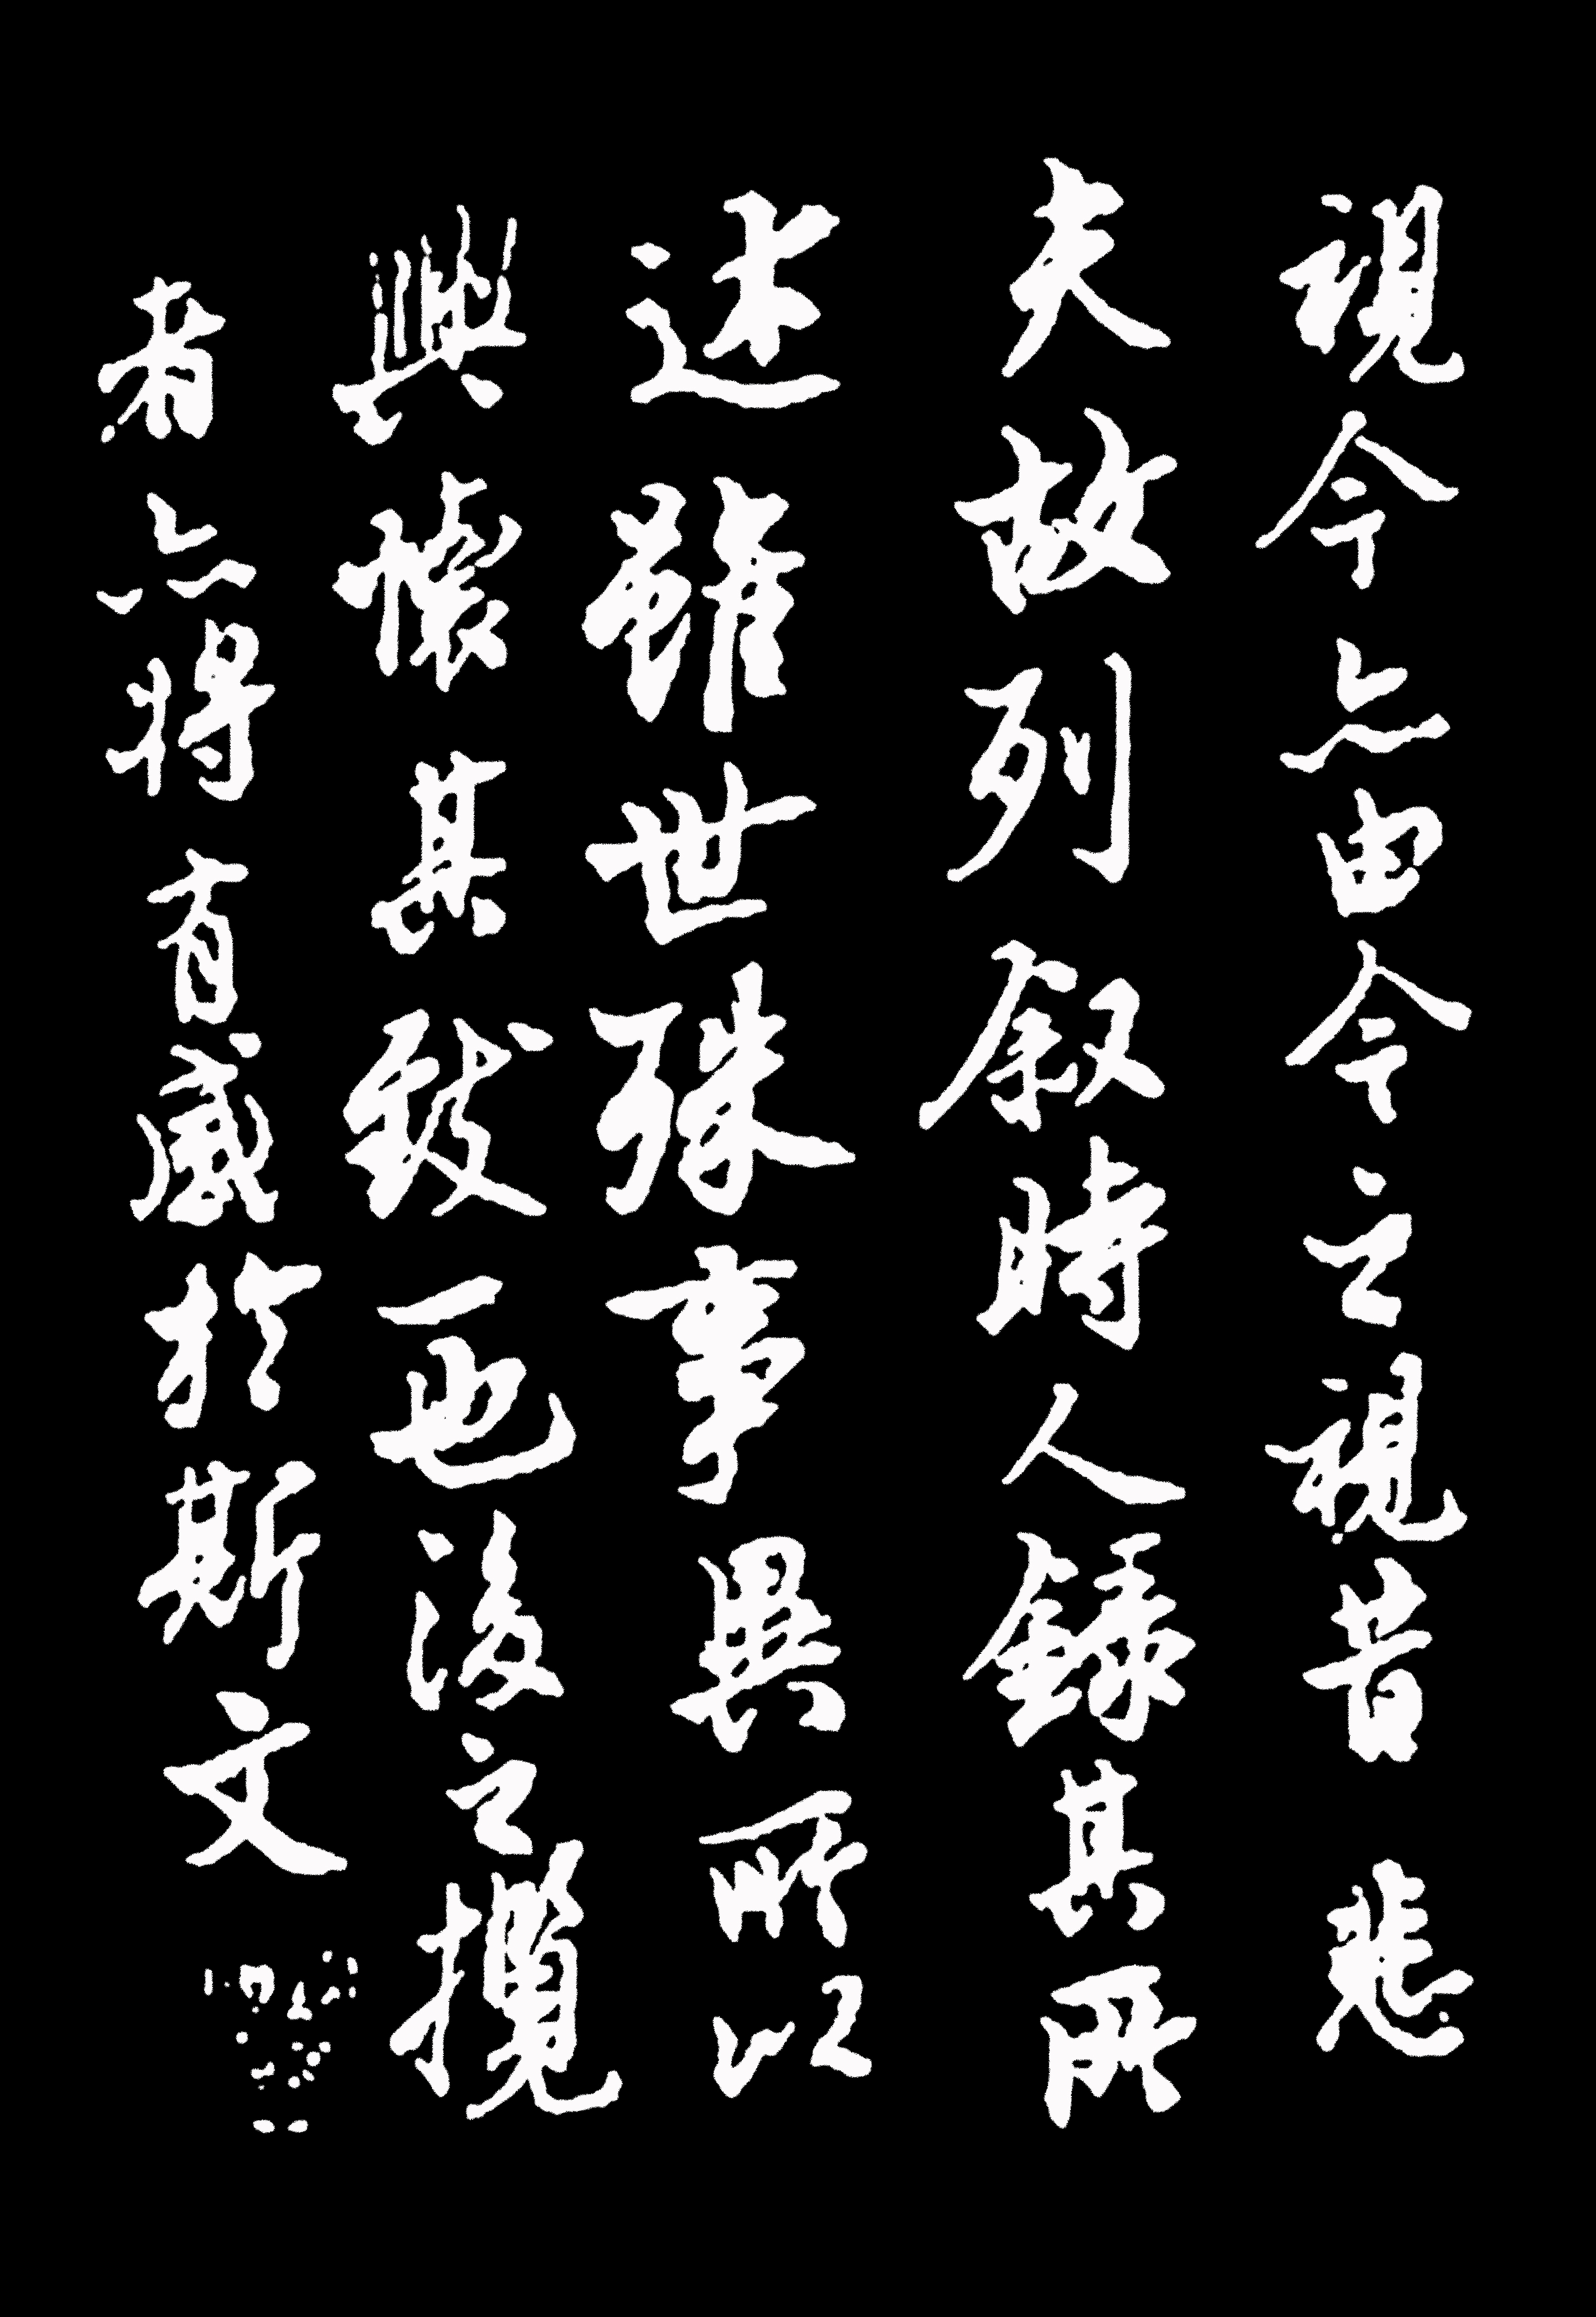 視今亦由今之視昔悲
夫故列叙時人録其所
述雖世殊事異所以
興懷其致一也後之攬
者亦將有感於斯文